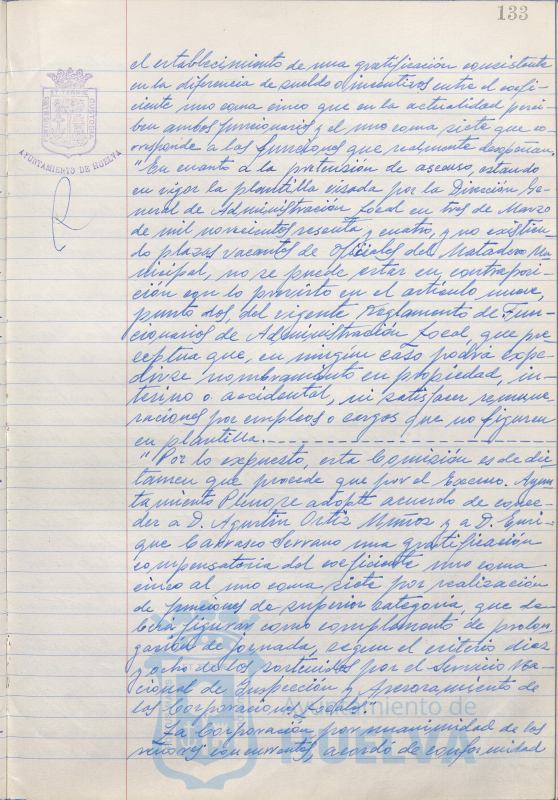 133
el establecimiento de una gratificación consistente
en la diferencia de sueldo o incentivos entre el coefi-
ciente uno coma cinco que en la actualidad perci
ben ambos funcionarios y el uno coma siete que co
rresponde a las funciones que realmente desempeñan.
"En cuanto a la pretensión de ascenso, estando
en vigor la plantilla visada por la Dirección Ge
neral de Administración Local en tres de Marzo
de mil novecientos setenta y cuatro, y no existien
do plazas vacantes de Oficiales del Matadero Mu
nicipal, no se puede estar en contraposi
ción con lo previsto en el artículo nueve,
punto dos del vigente Reglamento de Fun-
cionarios de Administración Local, que pre
ceptua que, en ningun caso podrá expe
dirse nombramiento en propiedad, in-
terino o accidental, ni satisfacer remune
raciones por empleos o cargos que no figuren
en plantilla.
"Por lo expuesto, esta Comisión es de dic
tamen que procede que por el Excmo. Ayun
tamiento Pleno se adopte acuerdo de conce-
der a D. Agustín Ortiz Muñoz y a D. Enri-
que Carrasco Serrano una gratificación
compensatoria del coeficiente uno coma
cinco al uno coma siete por realización
de funciones de superior categoria, que de
berá figurar como complemento de prolon
gación de jornada, segun el criterio diez
y ocho de los sostenidos por el Servicio Na
cional de Inspección y Asesoramiento de
las Corporaciones Locales."
La Corporación por unanimidad de los
señores concurrentes, acordó de conformidad
AYUNTAMIENTO DE HUELVA
Ayuntamiento de
HUELVA